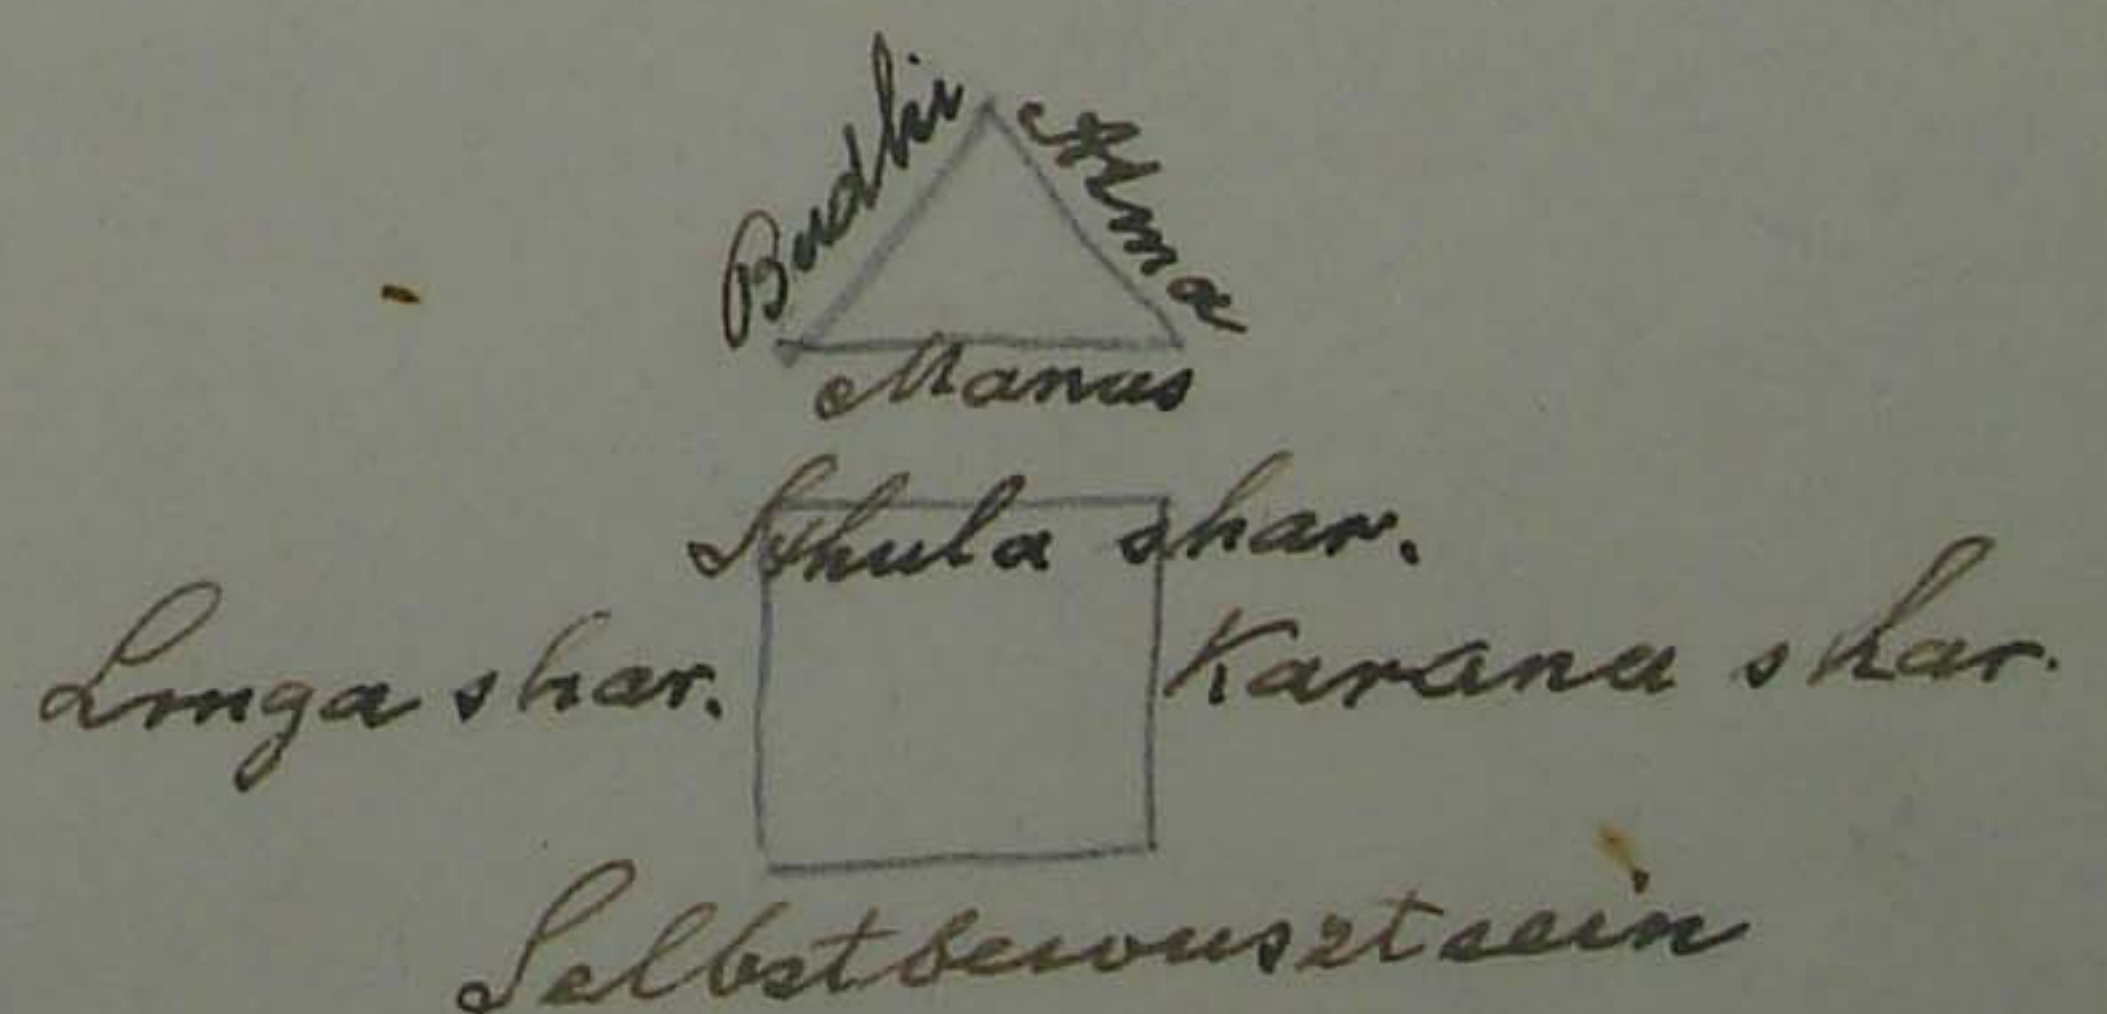 Budhi
Atma
Manas
Sthula shar.
Linga shar.
Karana shar.
Selbstbewusztsein